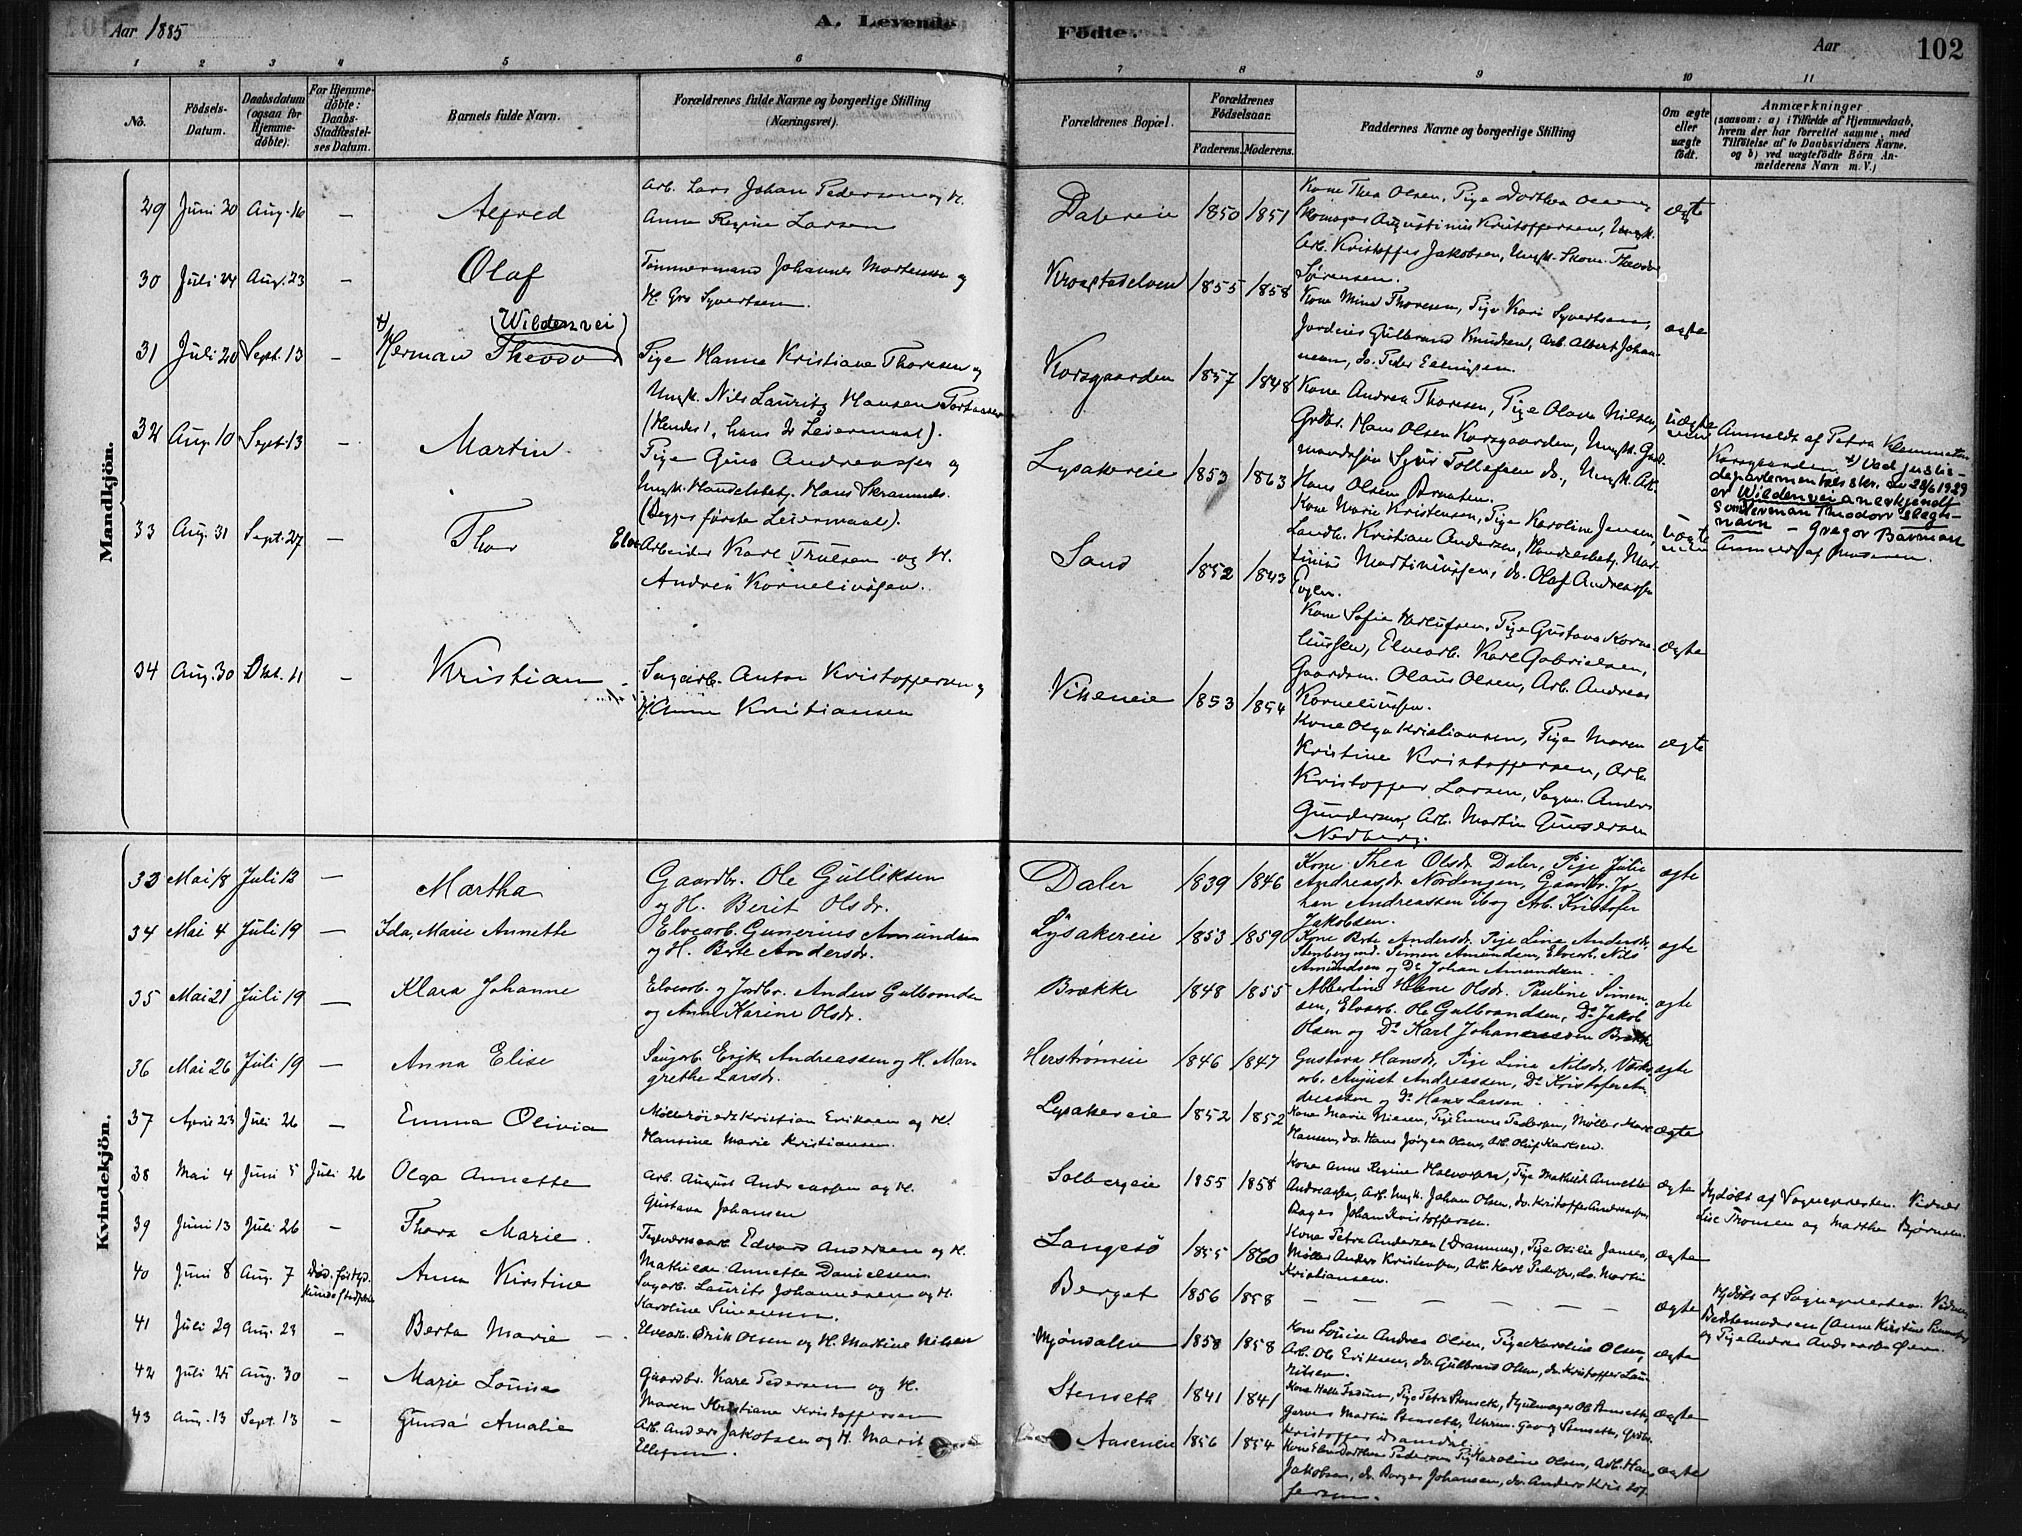 Aar 1885
A. Levende Födte.
Aar
102
1 2 3 4 5 6 7 8 9 10 11
No.
Födsels-Datum.
Daabsdatum (ogsaa for Hjemme-döbte).
For Hjemme-döbte: Daabs-Stadfæstel-ses Datum.
Barnets fulde Navn.
Forældrenes fulde Navne og borgerlige Stilling (Næringsvei).
Forældrenes Bopæl.
Forældrenes Födselsaar.
Faderens. Moderens.
Faddernes Navne og borgerlige Stilling
Om ægte eller uægte födt.
Anmærkninger
(saasom: a) i Tilfælde af Hjemmedaab, hvem der har forrettet samme, med Tilföielse af to Daabsvidners Navne, og b) ved uægtefödte Börn An-melderens Navn m. V.)
Mandkjön.
29 Juni 20 Aug. 16 – Alfred
Arb. Lars Johan Pedersen og H.
Anne Regine Larsen
1850 1851
Kone Thea Olsen, Pige Dorthea
Skomager Augustinus Kristoffersen, Ungk.
Arb. Kristoffer Jakobsen, Ungk. Skom. Theodor
Sørensen.
ægte
30 Juli 24 Aug. 23 – Olaf
Tømmermand Johannes Mortensen og
H. Gro Syvertsen.
Krogstadelven 1855 1858
Kone Mina Thoresen, Pige Kari Syvertsen,
Gulbrand Knudsen, Arb. Albert Johan-
nesen, do. Peder Ellingsen.
ægte
31 Juli 20 Sept. 13 – Herman Theodor (Wildenvei)
Pige Hanna Kristiane Thoresen og
Ungk. Nils Lauritz Hansen
(Hendes 1, hans 2 Leiermaal).
Korsgaarden 1857 1848
Kone Andrea Thoresen, Pige Olava Nilsen,
Grdbr. Hans Olsen Korsgaarden, Ungk. Gaard-
mandssøn Tollefsen do., Ungk. Arb.
Hans Olsen
uægte
Anmeldt af Petra Klemmetsen
Korsgaarden. Ved justis-
departementets skr. 28/6 1929
er Wildenvei anerkjendt
som Herman Theodors slegts-
navn – Gregor Barman
32 Aug. 10 Sept. 13 – Martin
Pige Gina Andreassen og
Ungk. Handelsbetj. Hans
(Begges første Leiermaal).
Lysakereie 1853 1863
Kone Marie Kristensen, Pige Karoline Jensen,
Landh. Kristian Andersen, Handelsbetj. Mar-
tinius Martiniussen, do. Olaf Andreassen
uægte
Anmeldt af Moderen.
33 Aug. 31 Sept. 27 – Thor
Elve-Arbeider Karl Truesen og H.
Andrea Korneliussen.
Sand 1852 1843
Kone Sofie Pige Gustava Korne-
liussen, Elvearb. Karl Gabrielsen,
Gaardm. Olaus Olsen, Arb. Andreas
Korneliussen.
ægte
34 Aug. 30 Okt. 11 – Kristian
Sagarb. Anton Kristoffersen og
H. Anne Kristiansen
1853 1854
Kone Olga Kristiansen, Pige Maren
Kristine Kristoffersen, Arb.
Kristoffer Larsen, Anders
Gundersen, Arb. Martin Gundersen
Nedberg.
ægte
Kvindekjön.
33 Mai 18 Juli 12 – Martha
Gaardbr. Ole Gulliksen
og H. Berit Olsdr.
Daler 1839 1846
Kone Thea Olsdr. Daler, Pige Julie
Andreasdr. Nordengen, Gaardbr. Jo-
han Andreassen ibog Arb. Kristofer
Jakobsen.
ægte
34 Mai 4 Juli 19 – Ida, Marie Annette
Elvearb. Gunerius Amundsen
og H. Berte Andersdr.
Lysakereie 1853 1859
Kone Berte Andersdr. Pige Lina Andersdr.
Simen Amundsen, Elvearb. Nils
Amundsen og Do Johan Amundsen.
ægte
35 Mai 21 Juli 19 – Klara Johanne
Elvearb. og Jordbr. Anders Gulbrandsen
og Anne Karine Olsdr.
Brække 1848 1855
Albertine Helene Olsdr. Pauline Simen-
sen, Elvearb. Ole Gulbrandsen, Do Jakob
Olsen og Do Karl Johannessen Brække
ægte
36 Mai 26 Juli 19 – Anna Elise
Sagarb. Erik Andreassen og H. Mar-
grethe Larsdr.
Herstrømeie 1846 1847
Gustava Hansdr., Pige Lina Nilsdr.
arb. August Andreassen, Do Kristofer An-
dreassen og Do Hans Larsen
ægte
37 April 23 Juli 26 – Emma Olivia
Kristian Eriksen og H.
Hansine Marie Kristiansen.
Lysakereie 1852 1852
Kone Marie Pige Emma Pedersen, Møller Karl
Hansen, do. Hans Jörgen Olsen, Arb. Oluf Karlsen.
ægte
38 Mai 4 Juni 5 Juli 26 Olga Annette
Arb. August Andreassen og H.
Gustava Johansen
Solbergeie 1855 1858
Kone Anne Regine Halvorsen, Pige Mathild Annette
Andreassen, Arb. Ungk. Johan Olsen, do. Kristoffer Andreassen,
Bager Johan Kristoffersen.
ægte
Hjdöbt af Sognepresten. Vidner
Lise Thomsen og Marthe Bjørnsen.
39 Juni 13 Juli 26 – Thora Marie.
Teglværksarb. Edvard Andersen og H.
Mathilde Annette Danielsen.
Langesö 1855 1860
Kone Petra Andersen (Drammen), Pige Jansen,
Møller Anders Kristensen, Arb. Karl Pedersen, do. Martin
Kristiansen.
ægte
40 Juni 8 Aug. 7 Anna Kirstine
Sagarb. Laurits Johannesen og H.
Karoline Simensen.
Berget 1856 1858
– – – – – –
ægte
Hjdöbt af Sognepresten.
Bedstemoderen (Anne Kirstine
og Pige Andrea
41 Juli 29 Aug. 23 – Berta Marie
Elvearb. Erik Olsen og H. Martine Nilsen
Mjøndalen 1858 1858
Kone Louise Andrea Olsen, Pige Karoline Olsen,
Arb. Ole Eriksen, do. Gulbrand Olsen, do. Kristoffer
Nilsen.
ægte
42 Juli 25 Aug. 30 – Marie Louise
Gaardbr. Karl Pedersen og H.
Maren Kristiane Kristoffersen
Stenseth 1841 1841
Kone Helle Pige Petra Stenseth, Hjulmager Ole Stenseth,
Martin Stenseth, Georg Stenseth,
Kristoffer
ægte
43 Aug. 13 Sept. 13 – Gunda Amalie
Arb. Anders Jakobsen og H. Marit
Ellefsen.
Aaseneie 1856 1854
Kone Pedersen Pige Karoline Olsen, Arb. Hans
Jakobsen, do. Borger Johansen, do. Anders Kristof-
fersen.
ægte